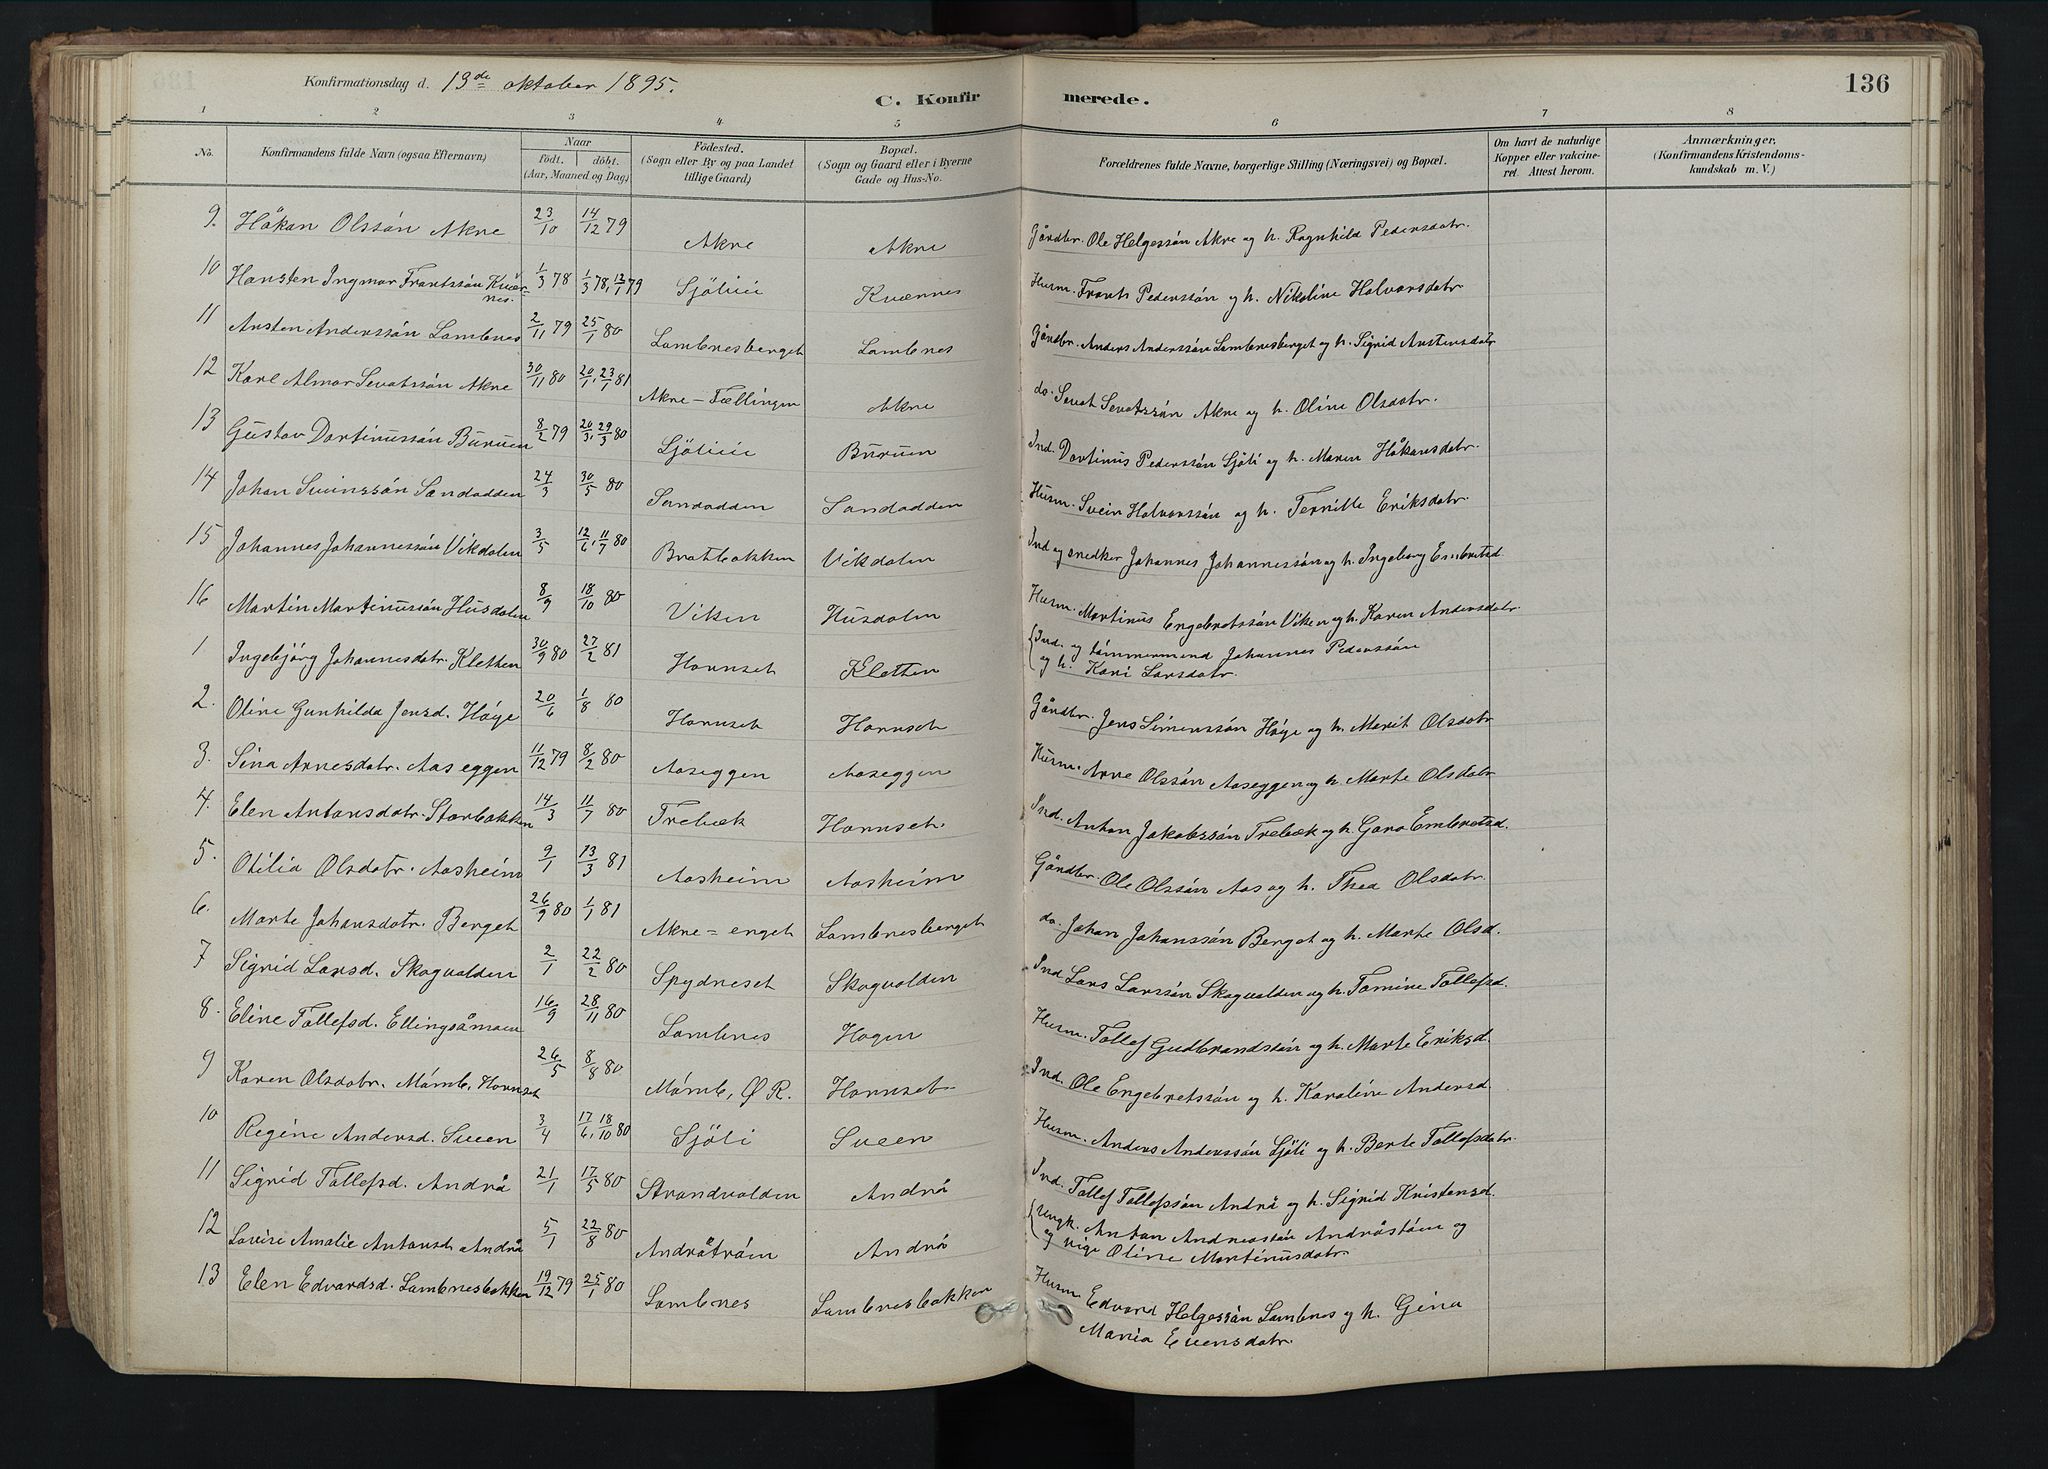 Konfirmationsdag d. 13de oktober 1895.
C. Konfirmerede.
136
1 2 3 4 5 6 7 8
No. | Konfirmandens fulde Navn (ogsaa Efternavn) | Naar født. døbt. (Aar, Maaned og Dag) | Fødested. (Sogn eller By og paa Landet tillige Gaard) | Bopæl. (Sogn og Gaard eller i Byerne Gade og Hus-No. | Forældrenes fulde Navne, borgerlige Stilling (Næringsvei) og Bopæl. | Om havt de naturlige Kopper eller vakcineret. Attest herom. | Anmærkninger. (Konfirmandens Kristendomskundskab m. V.)
9. Håkan Olssøn Akre 23/10 14/12 79 Akre Akre Gårdbr. Ole Helgessøn Akre og h. Ragnhild Pedersdatr.
10 Hansten Ingmar Frantssøn Kværnes. 1/3 78 1/3 78, 12/1 79 Sjøliii Kværnes Husm. Frants Pederssøn og h. Nikoline Halvorsdatr
11 Arsten Anderssøn Lambnes 2/11 79 25/1 80 Lambnesberget Lambnes Gårdbr. Anders Anderssøn Lambnesberget og h. Sigrid Arstensdatr
12 Karl Almar Sevatssøn Akre 30/11 80 20/1, 23/1 81 Akre-Fællingen Akre do. Sevat Sevatssøn Akre og h. Oline Olsdatr.
13 Gustav Dortinussøn Buruen 8/2 79 20/3, 29/3 80 Sjøliii Buruen Ind. Dortinus Pederssøn Sjøli og h. Maren Håkansdatr.
14 Johan Sveinssøn Sandodden 24/3 30/5 80 Sandodden Sandodden Husm. Svein Halvorssøn og h. Pernille Eriksdatr.
15 Johannes Johannessøn Vikdalen 3/5 12/6, 11/7 80 Bratbakken Vikdalen Ind og snedker Johannes Johannessøn og h. Ingeborg Embretsd
16 Martin Martinussøn Husdalen 8/9 18/10 80 Viken Husdalen Husm. Martinus Engebretssøn Viken og h. Karen Andersdatr.
1 Ingebjørg Johannesdatr. Kletten 30/9 80 27/2 81 Hornset Kletten Ind. og tømmermand Johannes Pederssøn
og h. Kari Larsdatr.
2. Oline Gunhilda Jensd. Høye 20/6 1/8 80 Hornset Hornset Gårdbr. Jens Simenssøn Høye og h. Marit Olsdatr
3. Sina Arnesdatr. Aaseggen 11/12 79 8/2 80 Aaseggen Aaseggen Husm. Arne Olssøn Aaseggen og h. Marte Olsdatr
4. Elen Antonsdatr. Storbakken 14/3 11/7 80 Trebæk Hornset. Ind. Anton Jakobssøn Trebæk og h. Gara Embretsd.
5. Otilia Olsdatr. Aasheim 9/1 13/3 81 Aasheim Aasheim Gårdbr. Ole Olssøn Aas og h. Thea Olsdatr.
6. Marte Johansdatr. Berget 26/9 80 1/1 81 Akre=enget Lambnesberget do. Johan Johanssøn Berget og h. Marte Olsd.
7 Sigrid Larsd. Skogvolden 2/1 22/2 80 Spydneset Skogvolden Ind Lars Larssøn Skogvolden og h. Tomine Tollefsd.
8. Eline Tollefsd. Ellingsåmoen 16/9 28/11 80 Lambnes Hagen Husm. Tollef Gudbrandssøn og h. Marte Eriksd.
9 Karen Olsdatr. Mømb, Hornset 26/5 8/8 80 Mømb, Ø R. Hornset Ind. Ole Engebretssøn og h. Karoline Andersd
10 Regine Andersd. Sveen 3/4 17/6, 18/10 80 Sjøli Sveen Husm. Anders Anderssøn Sjøli og h. Berte Tollefsdatr.
11 Sigrid Tollefsd. Andrå 21/1 17/5 80 Strandvolden Andrå Ind. Tollef Tollefssøn Andrå og h. Sigrid Kristensd.
12 Lovise Amalie Antonsd. Andrå 5/1 22/8 80 Andråstrøm Andrå Ungk. Anton Andreassøn Andråstøm og
og pige Oline Martinusdatr.
13 Elen Edvardsd. Lambnesbakken 19/12 79 25/1 80 Lambnes Lambnesbakken Husm Edvard Helgessøn Lambnes og h. Gina
Maria Evensdatr.